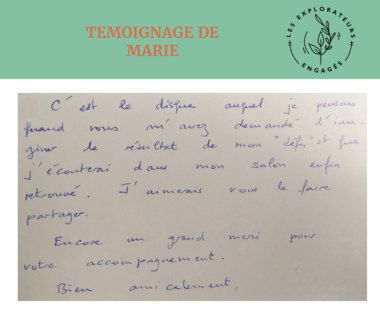 TEMOIGNAGE DE
MARIE
LES EXPLORATEURS
ENGAGÉS
C'est le disque auquel je pensais
quand vous m'avez demandé d'ima-
giner le résultat de mon "défi," et que
j'écouterai dans mon salon enfin
retrouvé. J'aimerais vous le faire
partager.
Encore un grand merci pour
votre accompagnement.
Bien amicalement,